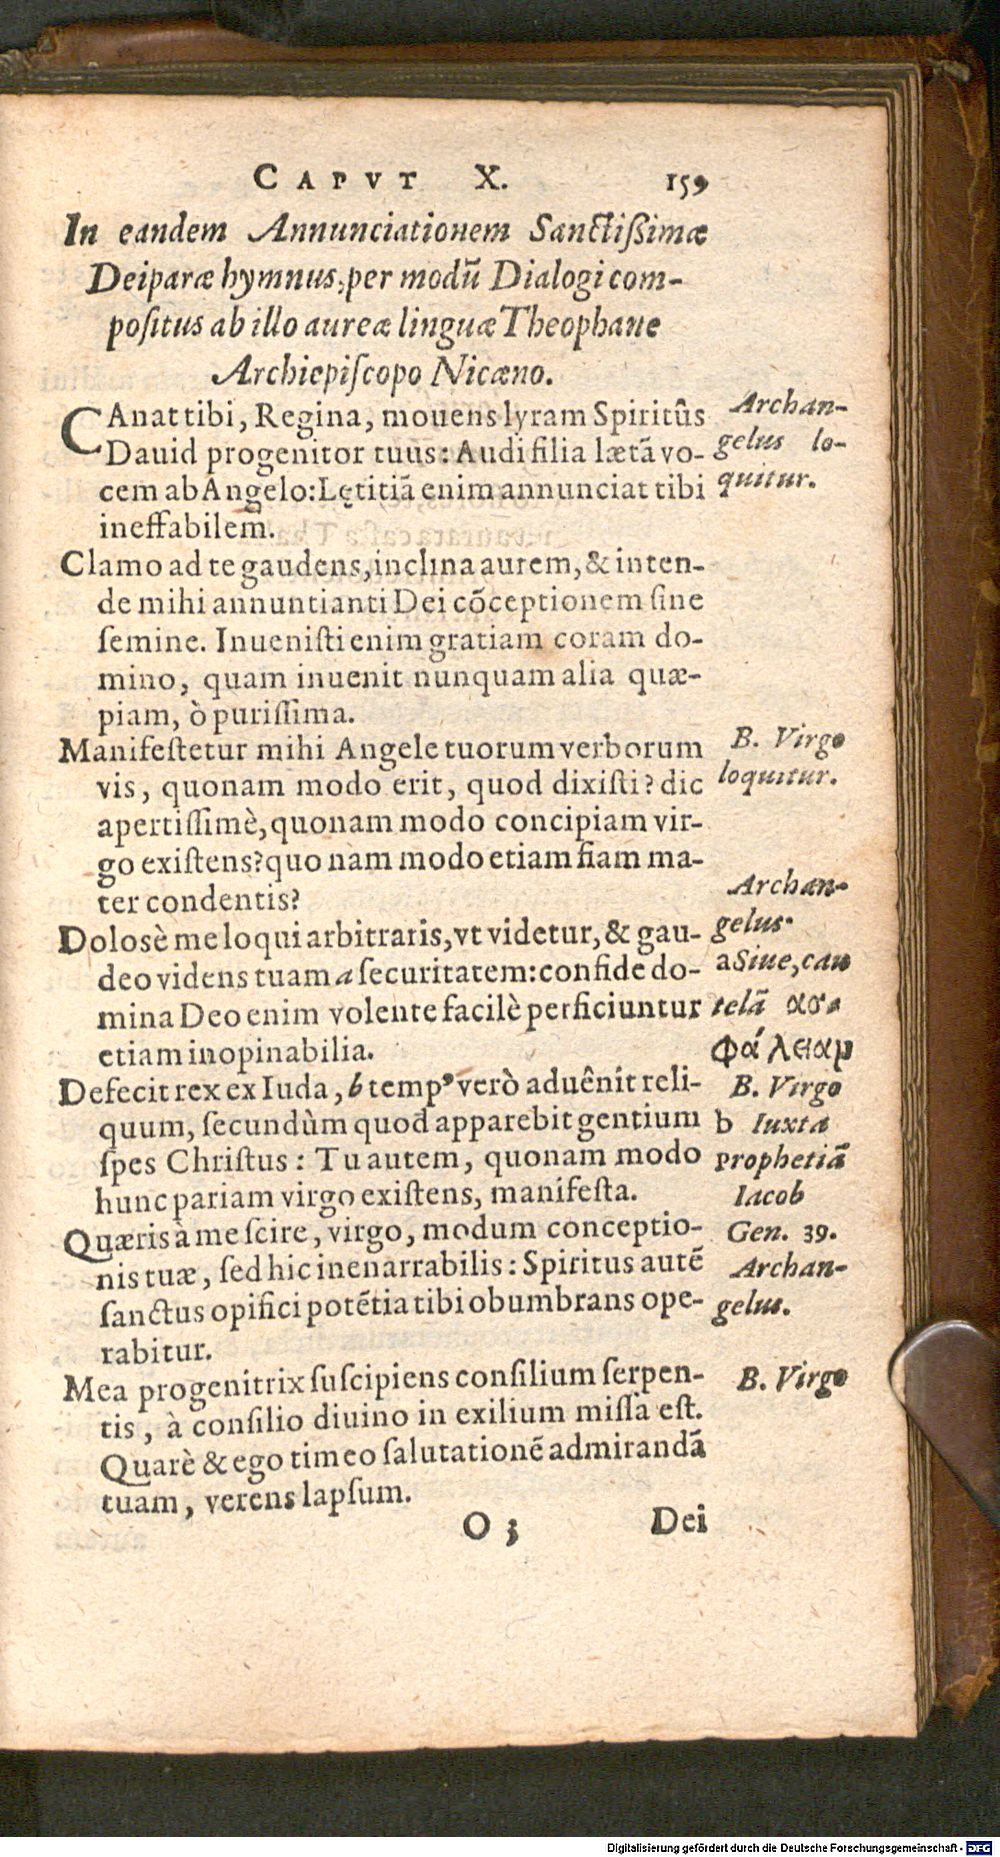 CAPVT X. 159
In eandem Annunciationem Sanctißimæ
Deiparæ hymnus, per modũ Dialogi com-
poſitus ab illo aureæ linguæ Theophane
Archiepiſcopo Nicæno.
CAnat tibi, Regina, mouens lyram Spiritûs
Dauid progenitor tuus: Audi filia lætã vo-
cem ab Angelo: Lętitiã enim annunciat tibi
ineffabilem.
Archan-
gelus lo-
quitur.
Clamo ad te gaudens, inclina aurem, & inten-
de mihi annuntianti Dei cõceptionem ſine
ſemine. Inueniſti enim gratiam coram do-
mino, quam inuenit nunquam alia quæ-
piam, ò puriſſima.
Manifeſtetur mihi Angele tuorum verborum
vis, quonam modo erit, quod dixiſti? dic
apertiſſimè, quonam modo concipiam vir-
go exiſtens? quo nam modo etiam fiam ma-
ter condentis?
B. Virgo
loquitur.
Dolosè me loqui arbitraris, vt videtur, & gau-
deo videns tuam a ſecuritatem: confide do-
mina Deo enim volente facilè perficiuntur
etiam inopinabilia.
Archan-
gelus.
a Siue, cau
telã ασ-
φάλειαμ
Defecit rex ex Iuda, b tempꝰ verò aduênit reli-
quum, ſecundùm quod apparebit gentium
ſpes Chriſtus: Tu autem, quonam modo
hunc pariam virgo exiſtens, manifeſta.
B. Virgo
b Iuxta
prophetiã
Iacob
Gen. 39.
Quæris à me ſcire, virgo, modum conceptio-
nis tuæ, ſed hic inenarrabilis: Spiritus autẽ
ſanctus opifici potẽtia tibi obumbrans ope-
rabitur.
Archan-
gelus.
Mea progenitrix ſuſcipiens conſilium ſerpen-
tis, à conſilio diuino in exilium miſſa eſt.
Quarè & ego timeo ſalutationẽ admirandã
tuam, verens lapſum.
B. Virgo
O 3 Dei
Digitalisierung gefördert durch die Deutsche Forschungsgemeinschaft - DFG